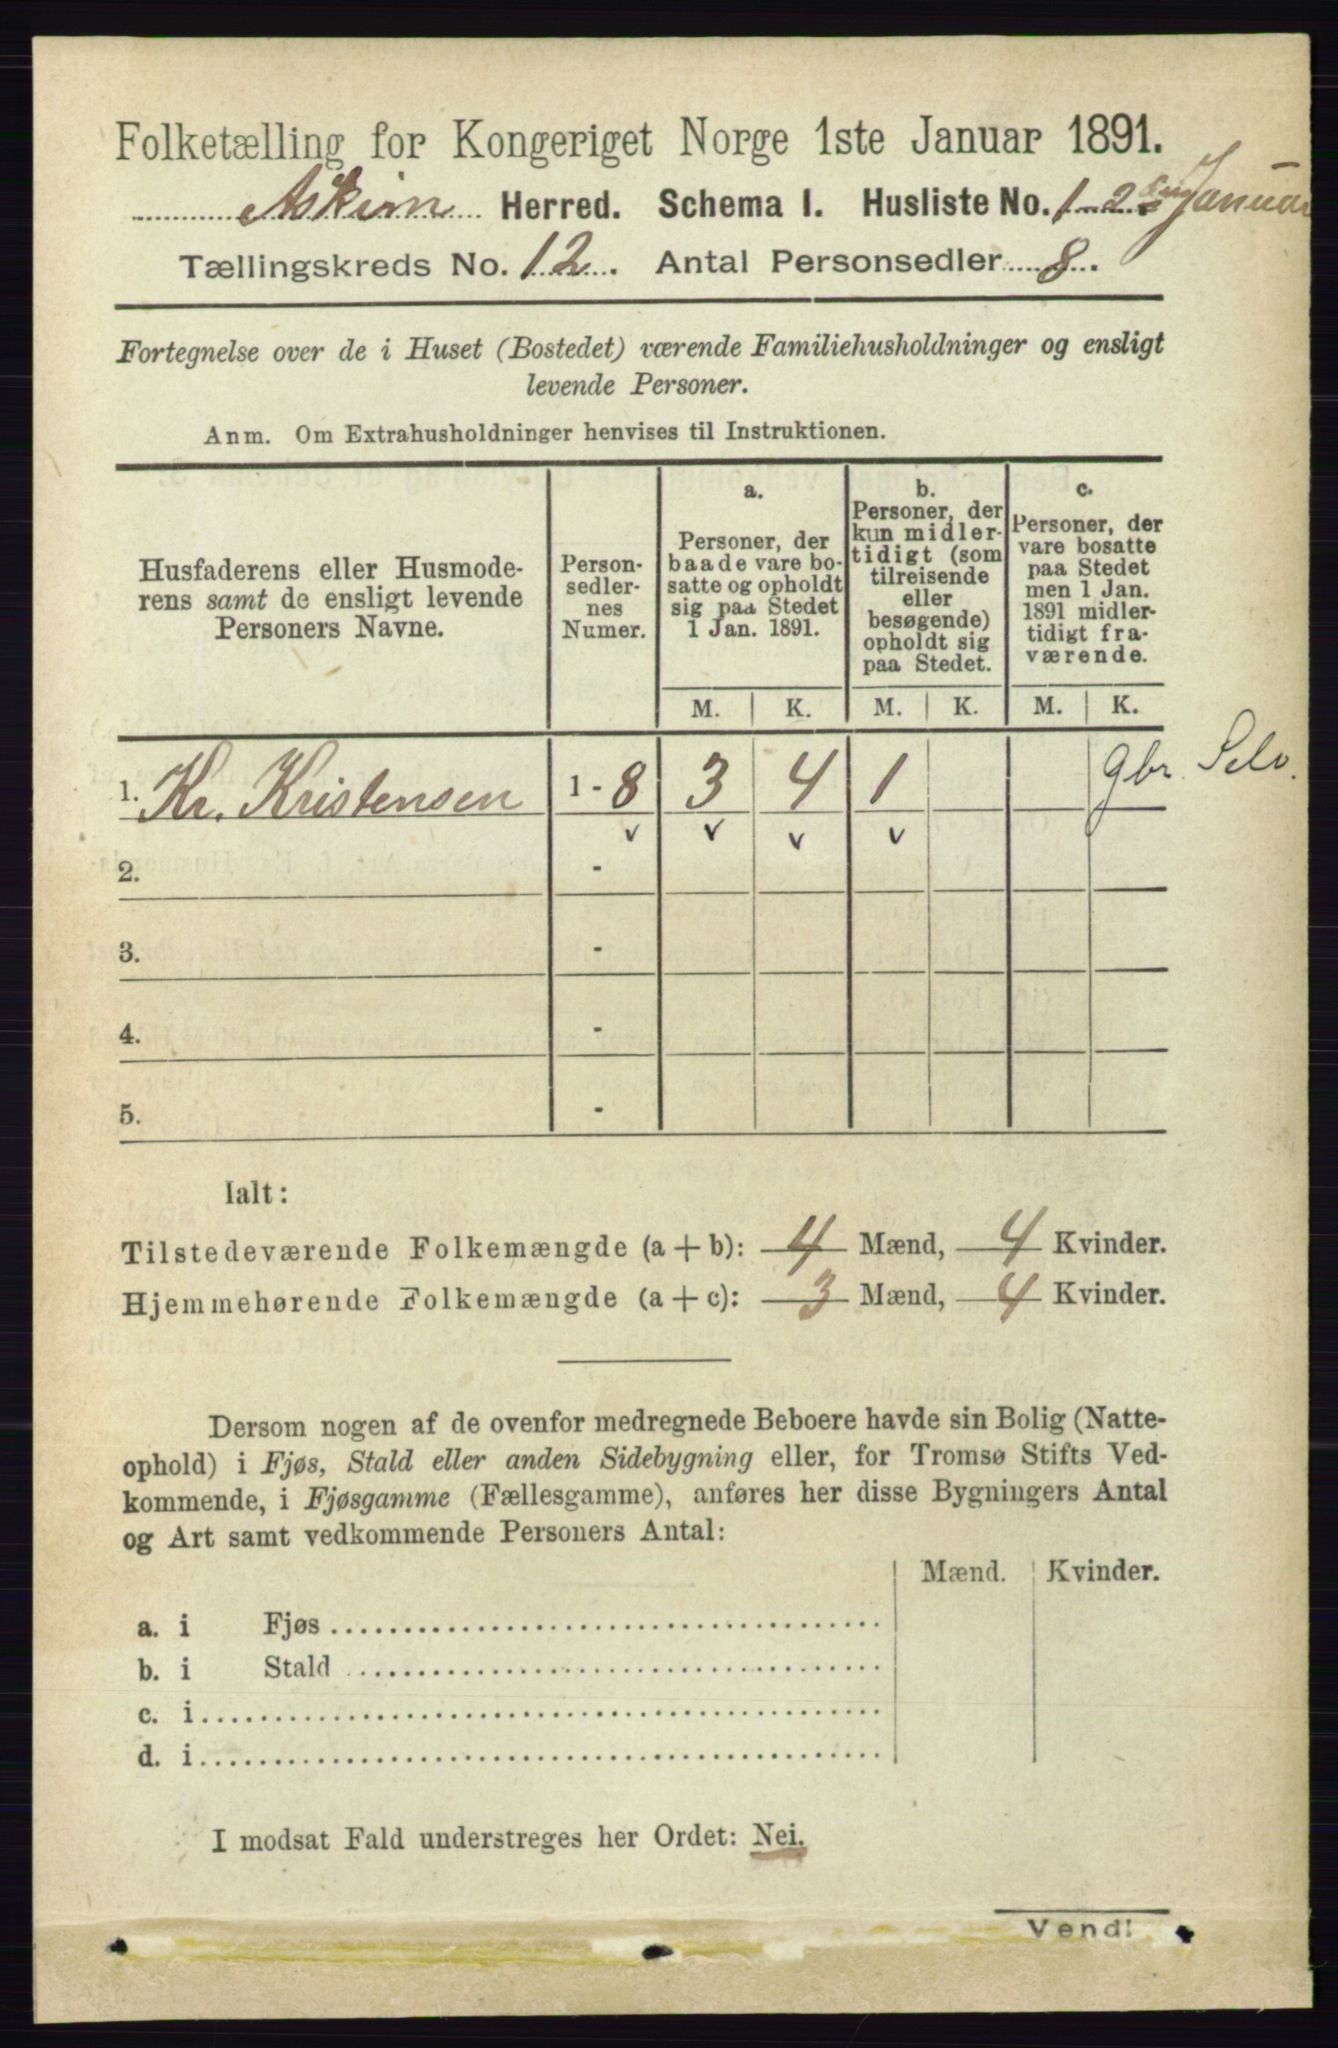 Folketælling for Kongeriget Norge 1ste Januar 1891.
Askim Herred. Schema I. Husliste No. 1 2den Januar
Tællingskreds No. 12. Antal Personsedler 8.
Fortegnelse over de i Huset (Bostedet) værende Familiehusholdninger og ensligt
levende Personer.
Anm. Om Extrahusholdninger henvises til Instruktionen.
Husfaderens eller Husmode-
rens samt de ensligt levende
Personers Navne.
Person-
sedler-
nes
Numer.
a.
Personer, der
baade vare bo-
satte og opholdt
sig paa Stedet
1 Jan. 1891.
b.
Personer, der
kun midler-
tidigt (som
tilreisende
eller
besøgende)
opholdt sig
paa Stedet.
c.
Personer, der
vare bosatte
paa Stedet
men 1 Jan.
1891 midler-
tidigt fra-
værende.
M. K. M. K. M. K.
1. Kr. Kristensen 1 - 8 3 4 1 gbr. Selv.
v v v v
2. -
3. -
4. -
5. -
Ialt:
Tilstedeværende Folkemængde (a + b): 4 Mænd, 4 Kvinder.
Hjemmehørende Folkemængde (a + c): 3 Mænd, 4 Kvinder.
Dersom nogen af de ovenfor medregnede Beboere havde sin Bolig (Natte-
ophold) i Fjøs, Stald eller anden Sidebygning eller, for Tromsø Stifts Ved-
kommende, i Fjøsgamme (Fællesgamme), anføres her disse Bygningers Antal
og Art samt vedkommende Personers Antal:
Mænd. Kvinder.
a. i Fjøs
b. i Stald
c. i
d. i
I modsat Fald understreges her Ordet: Nei.
Vend!